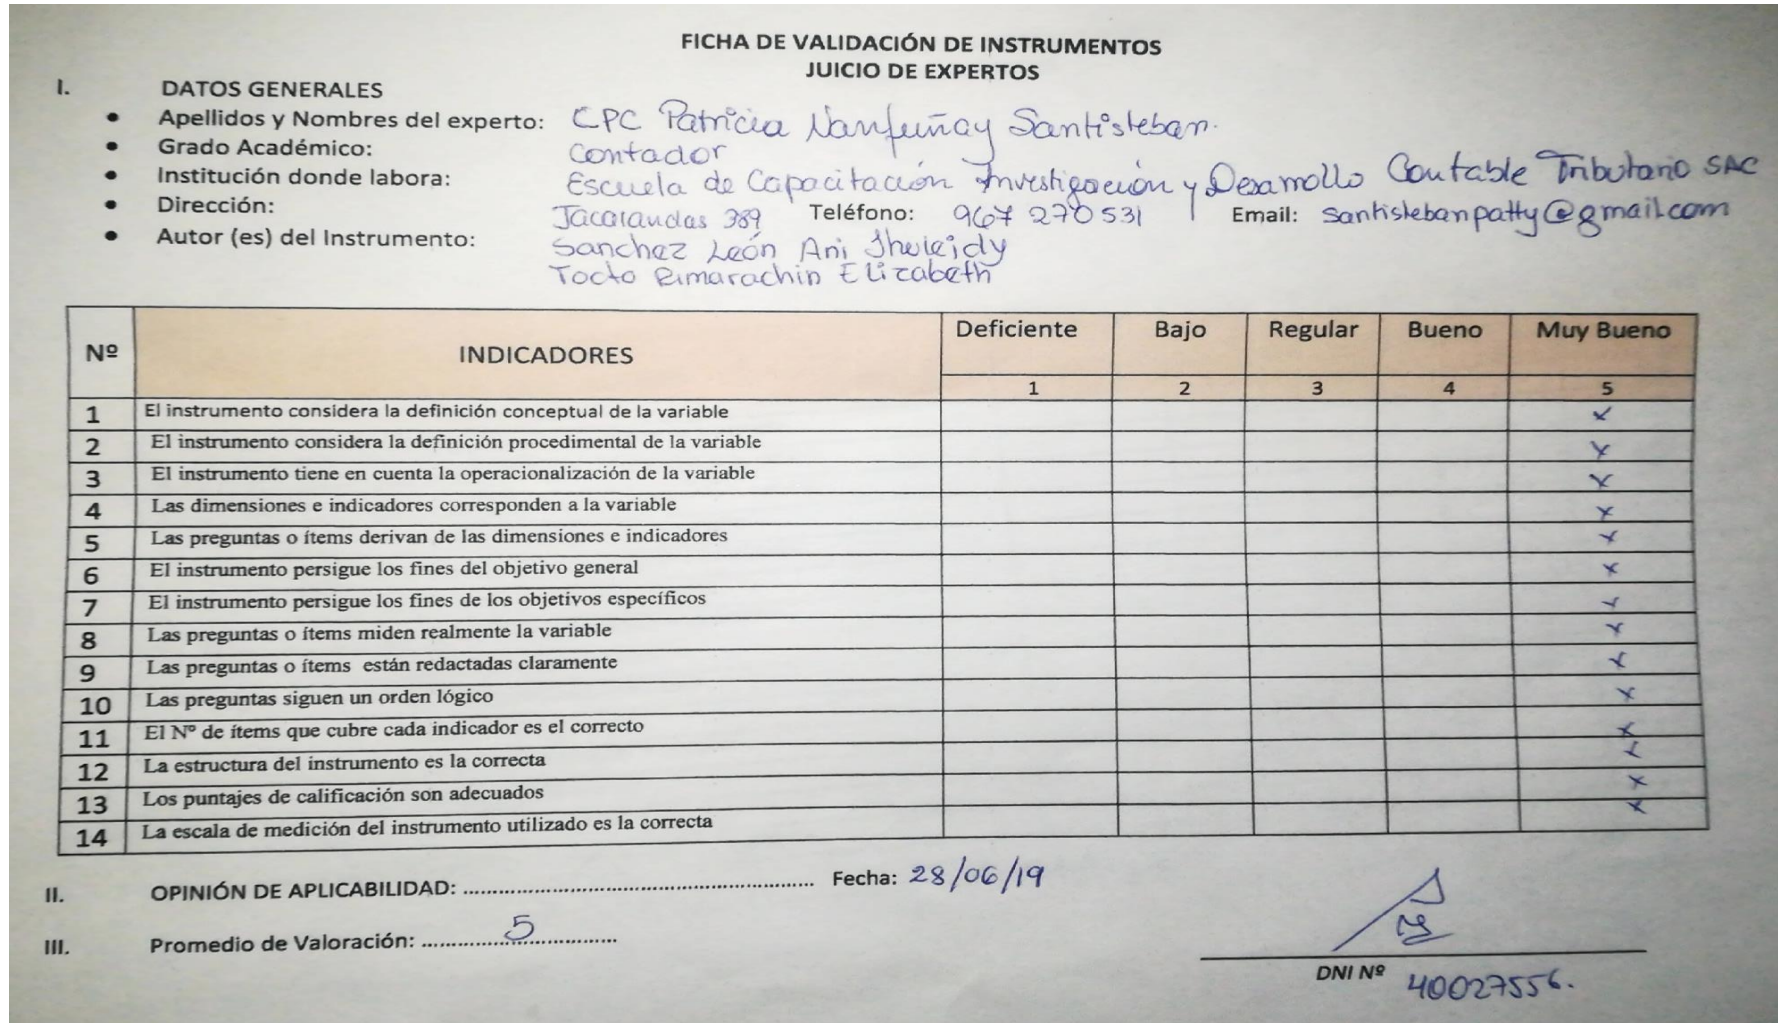 FICHA DE VALIDACIÓN DE INSTRUMENTOS
JUICIO DE EXPERTOS
I. DATOS GENERALES
• Apellidos y Nombres del experto: CPC Patricia Nanfuñay Santisteban.
• Grado Académico: Contador
• Institución donde labora: Escuela de Capacitación Investigación y Desarrollo Contable Tributario SAC
• Dirección: Jacarandas 389 Teléfono: 967 270 531 Email: santistebanpatty@gmail.com
• Autor (es) del Instrumento: Sanchez León Ani Jhuleidy
Tocto Rimarachin Elizabeth
Nº INDICADORES Deficiente Bajo Regular Bueno Muy Bueno
1 2 3 4 5
1 El instrumento considera la definición conceptual de la variable x
2 El instrumento considera la definición procedimental de la variable x
3 El instrumento tiene en cuenta la operacionalización de la variable x
4 Las dimensiones e indicadores corresponden a la variable x
5 Las preguntas o ítems derivan de las dimensiones e indicadores x
6 El instrumento persigue los fines del objetivo general x
7 El instrumento persigue los fines de los objetivos específicos x
8 Las preguntas o ítems miden realmente la variable x
9 Las preguntas o ítems están redactadas claramente x
10 Las preguntas siguen un orden lógico x
11 El Nº de ítems que cubre cada indicador es el correcto x
12 La estructura del instrumento es la correcta x
13 Los puntajes de calificación son adecuados x
14 La escala de medición del instrumento utilizado es la correcta x
II. OPINIÓN DE APLICABILIDAD: ........................................................ Fecha: 28/06/19
III. Promedio de Valoración: ...............5................
DNI Nº 40027556.